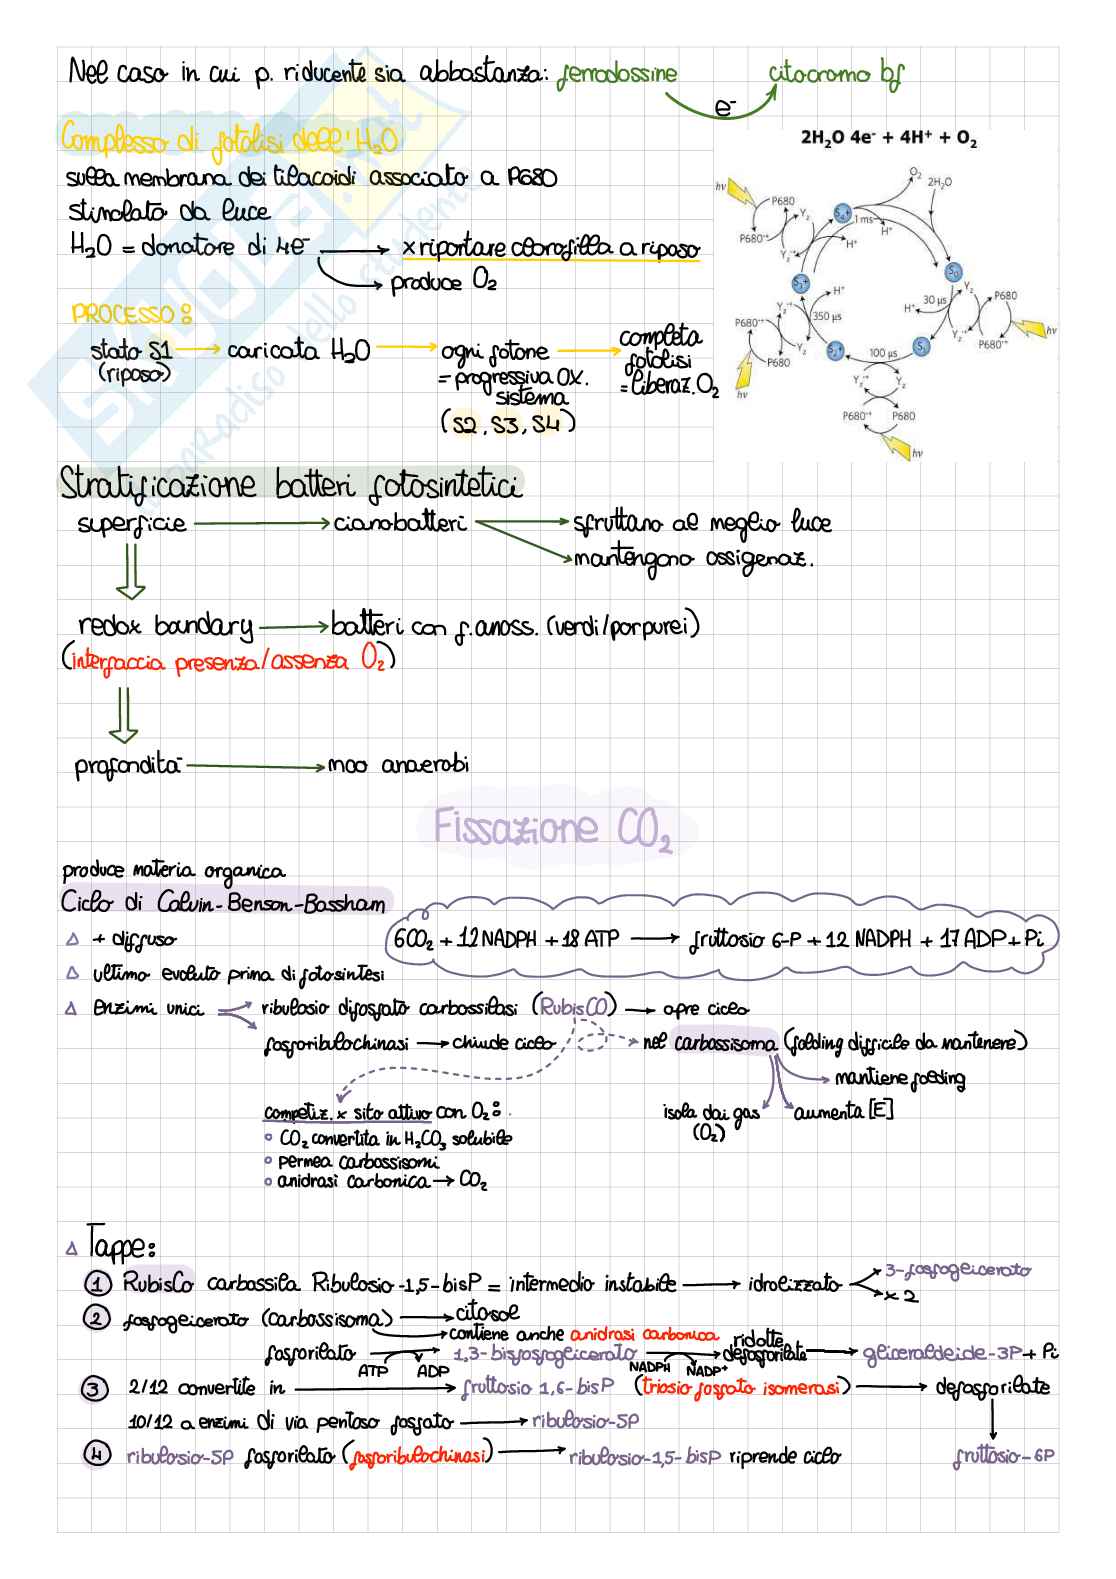 Nel caso in cui p. riducente sia abbastanza: ferrodossine citocromo bf
e⁻
Complesso di fotolisi dell'H₂O
sulla membrana dei tilacoidi associato a P680
stimolato da luce
H₂O = donatore di 4e⁻ x riportare clorofilla a riposo
produce O₂
PROCESSO:
stato S1 caricata H₂O ogni fotone completa
(riposo) = progressiva OX. fotolisi
sistema = liberaz. O₂
(S2, S3, S4)
2H₂O 4e⁻ + 4H⁺ + O₂
hν P680 Y_z S₄⁺ O₂ 2H₂O
P680⁺ Y_z⁺ H⁺ 1 ms H⁺
S₃⁺ S₀
P680⁺ Y_z⁺ H⁺ 350 µs H⁺ 30 µs Y_z P680
P680 Y_z S₂⁺ S₁ Y_z⁺ P680⁺ hν
hν 100 µs
Y_z⁺ Y_z
P680⁺ P680
hν
Stratificazione batteri fotosintetici
superficie cianobatteri sfruttano al meglio luce
mantengono ossigenaz.
redox boundary batteri con f. anoss. (verdi/porpurei)
(interfaccia presenza/assenza O₂)
profondità moo anaerobi
Fissazione CO₂
produce materia organica
Ciclo di Calvin-Benson-Bassham
△ + diffuso
6CO₂ + 12 NADPH + 18 ATP → fruttosio 6-P + 12 NADPH + 17 ADP + Pi
△ ultimo evoluto prima di fotosintesi
△ enzimi unici ribulosio difosfato carbossilasi (RubisCO) → apre ciclo
fosforibulochinasi → chiude ciclo nel carbossisoma (folding difficile da mantenere)
mantiene folding
competiz. x sito attivo con O₂: isola dai gas aumenta [E]
(O₂)
• CO₂ convertita in H₂CO₃ solubile
• permea carbossisomi
• anidrasi carbonica → CO₂
△ Tappe:
1 RubisCo carbossila Ribulosio-1,5-bisP = intermedio instabile → idrolizzato 3-fosfoglicerato
x 2
2 fosfoglicerato (carbossisoma) → citosol
contiene anche anidrasi carbonica
fosforilato 1,3-bisfosfoglicerato ridotte defosforilate gliceraldeide-3P + Pi
ATP ADP NADPH NADP⁺
3 2/12 convertite in fruttosio 1,6-bisP (triosio fosfato isomerasi) defosforilate
10/12 a enzimi di via pentoso fosfato ribulosio-5P
4 ribulosio-5P fosforilato (fosforibulochinasi) ribulosio-1,5-bisP riprende ciclo fruttosio-6P